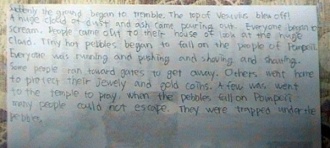 the ground began to tremble. The top of Vesuvius blew off!
A huge cloud of dust and ash came pouring out. Everyone began to
scream. People came out to their house of look at the huge
cloud. Tiny hot pebbles began to fall on the people of Pompeii.
Everyone was running and pushing and shoving, and shoving.
Some people ran toward gates to get away. Others went home
to protect their jewely and gold coins. A few was went
to the temple to pray. when the pebbles fall on Pompeii
many people could not escape. They were trapped under the
pebbles.